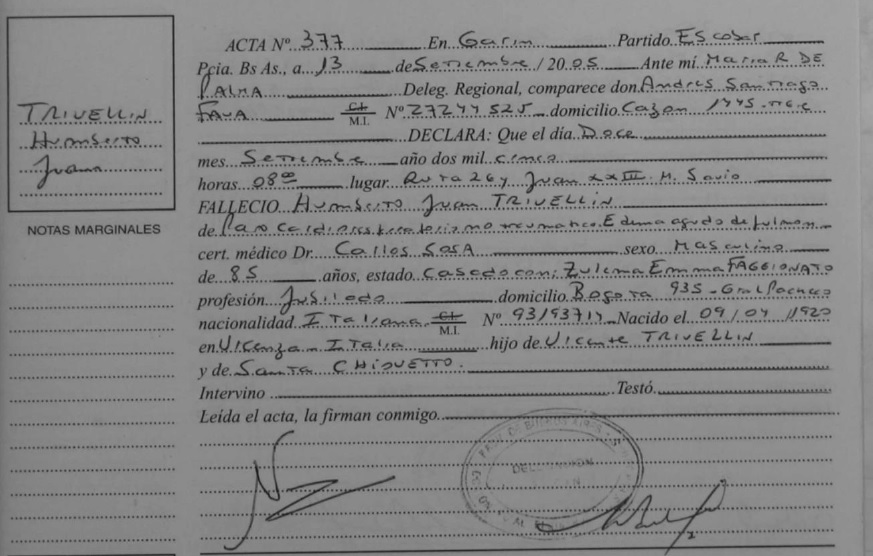 TRIVELLIN
Humberto
Juan
NOTAS MARGINALES
ACTA Nº 377 En Garin Partido Escobar
Pcia. Bs As., a 13 de Setiembre / 2005 Ante mí Maria R DE
PALMA Deleg. Regional, comparece don Andres Santiago
FAVA C.I. M.I. Nº 27244525 domicilio Cazon
DECLARA: Que el día Doce
mes Setiembre año dos mil cinco
horas 08°° lugar Ruta 26 y Juan XXIII. M. Savio
FALLECIO Humberto Juan TRIVELLIN
de Paro Cardiorespiratorio no traumatico. Edema agudo de pulmon
cert. médico Dr. Carlos SOSA sexo Masculino
de 85 años, estado Casado con: Zulema Emma FAGGIONATO
profesión Jubilado domicilio Bogota 935 - Gral Pacheco
nacionalidad Italiana C.I. M.I. Nº Nacido el 09/04/1920
en Vicenza - Italia hijo de Vicente TRIVELLIN
y de Santa CHIOVETTO.
Intervino Testó
Leída el acta, la firman conmigo.
DELEGACIÓN